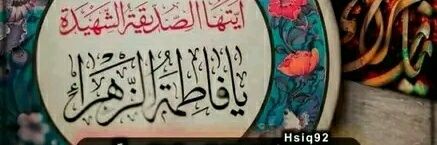 أيتها الصديقة الشهيدة
يا فاطمة الزهراء
Hsiq92